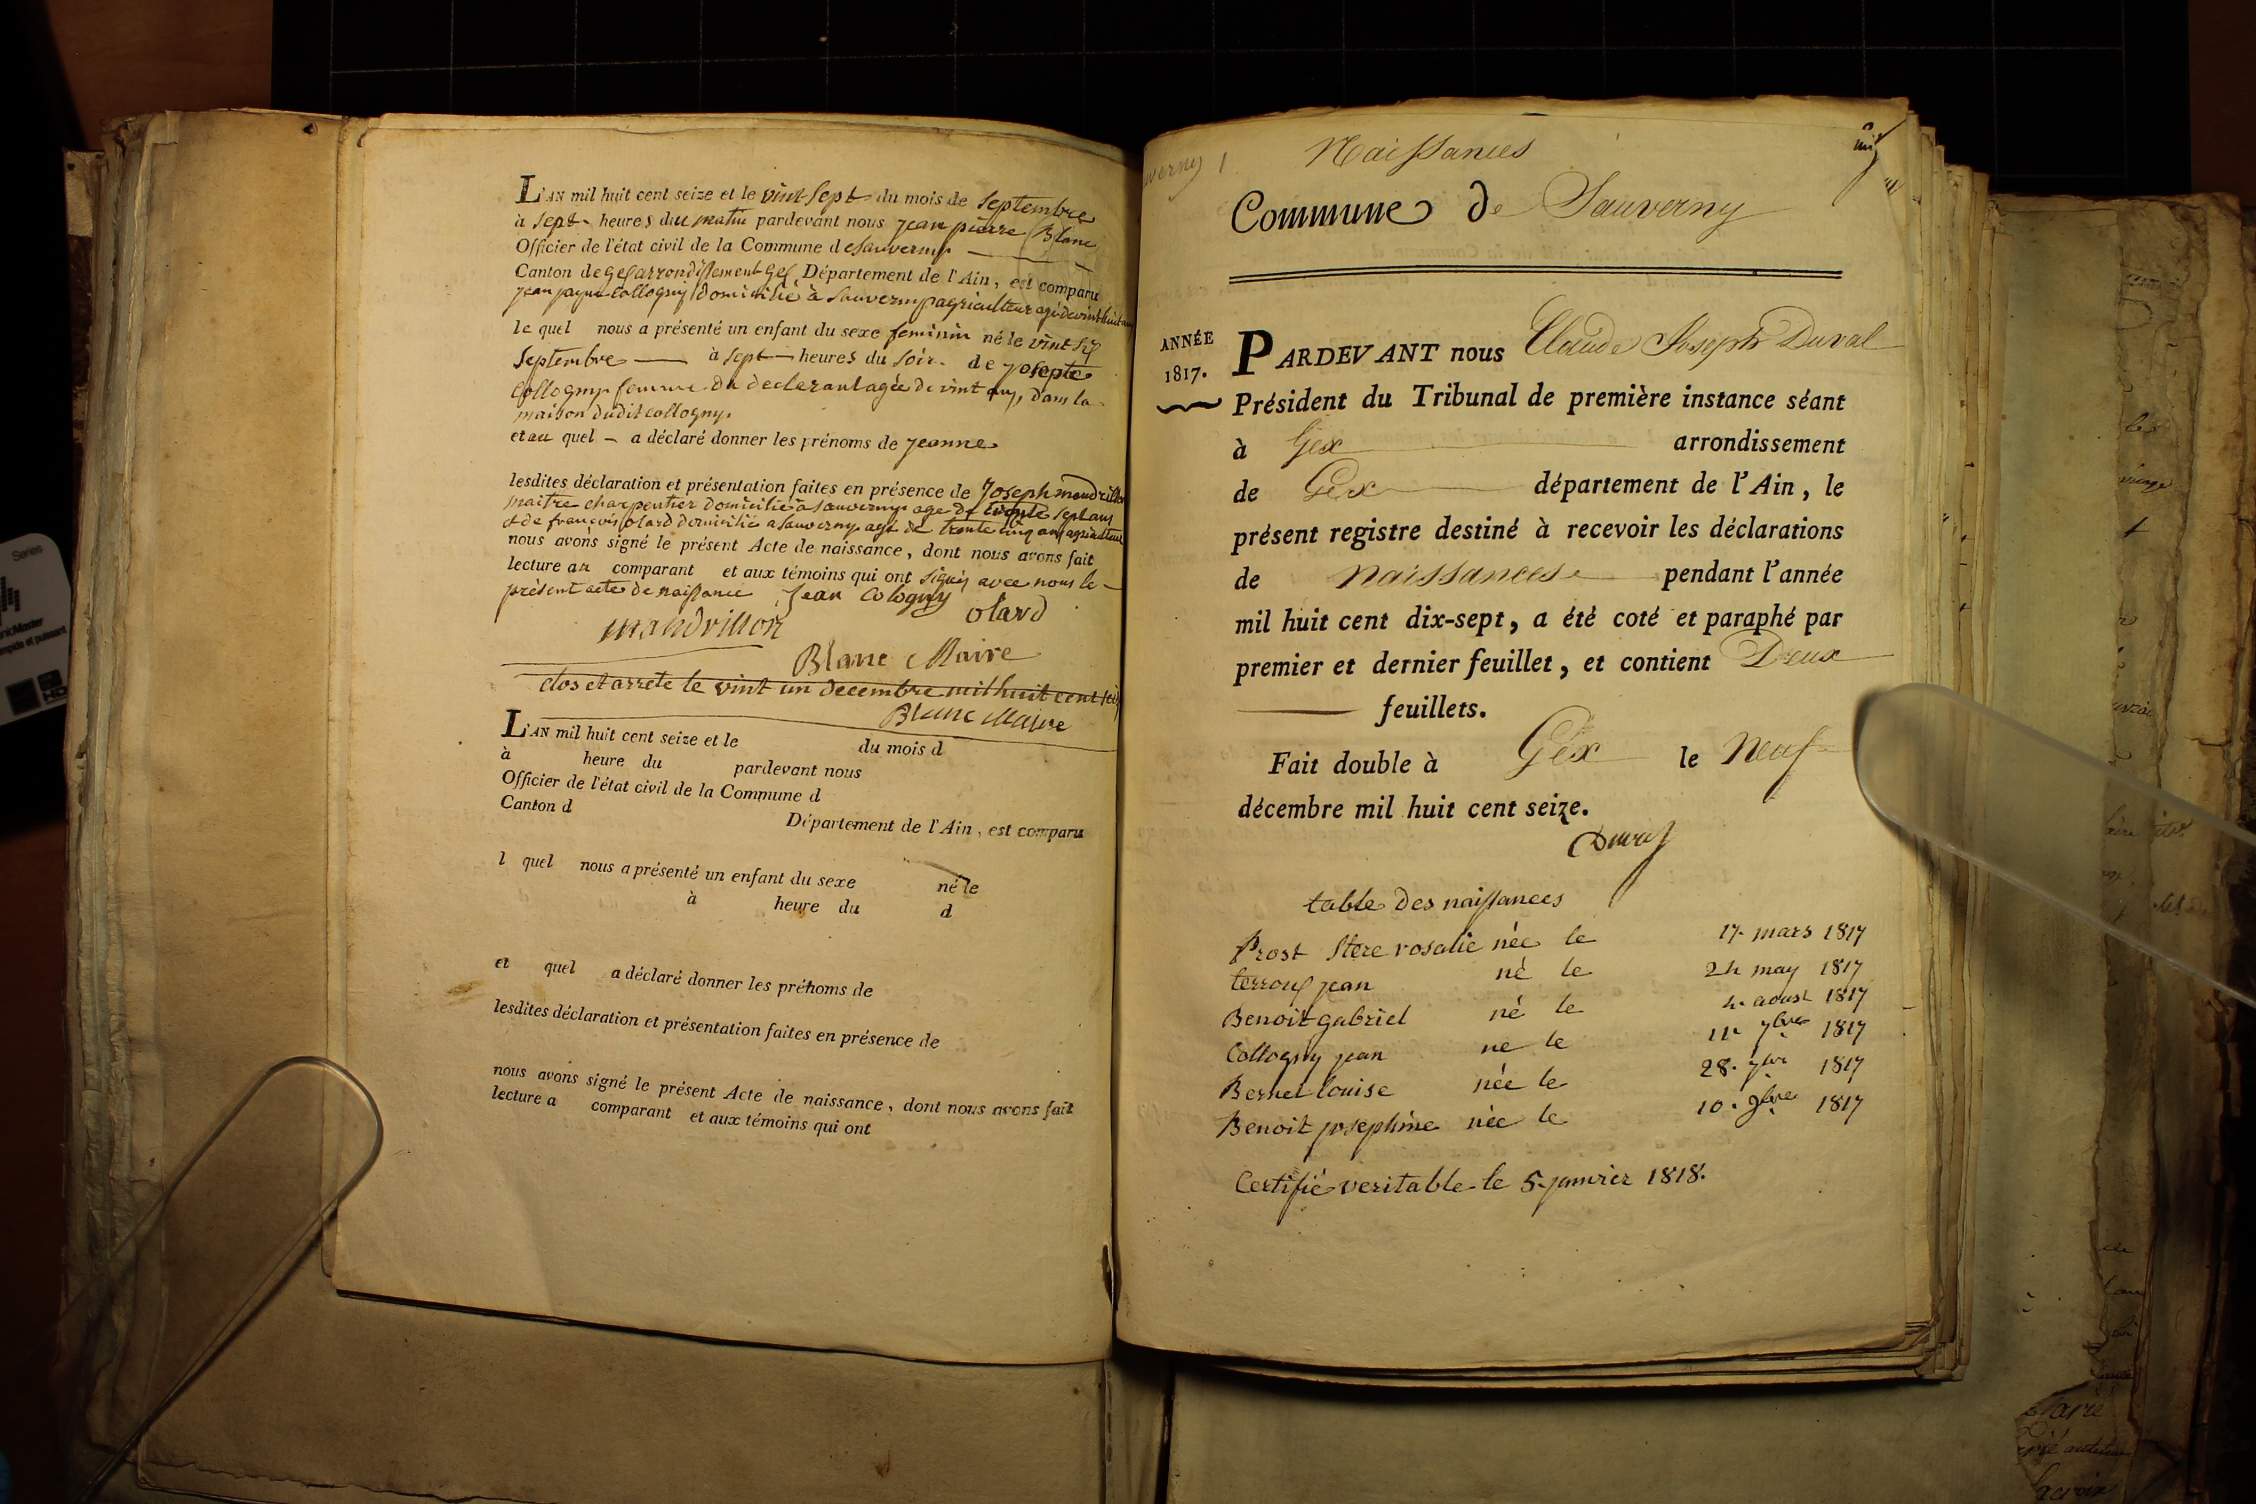 L'AN mil huit cent seize et le vint sept du mois de septembre
à sept heures du matin pardevant nous jean pierre Blanc
Officier de l'état civil de la Commune de sauverny
Canton de Gex arrondissement Gex Département de l'Ain, est comparu
jean jaque Collogny domicilié à Sauverny agriculteur agé de vint huit ans
le quel nous a présenté un enfant du sexe feminin né le vint six
Septembre à sept heures du soir de josepte
Collogny femme du declarant agée de vint ans, dans la
maison dudit collogny.
et au quel a déclaré donner les prénoms de jeanne
lesdites déclaration et présentation faites en présence de Joseph mandrillon
maitre charpentier domicilié à sauverny age de trente sept ans
et de françois olard domicilié a Sauverny agé de trente cinq ans agriculteur
nous avons signé le présent Acte de naissance, dont nous avons fait
lecture au comparant et aux témoins qui ont signés avec nous le
présent acte de naissance Jean Cologny
olard
mandrillon
Blanc Maire
clos et arrete le vint un decembre mil huit cent seize
Blanc Maire
L'AN mil huit cent seize et le du mois d
à heure du pardevant nous
Officier de l'état civil de la Commune d
Canton d
Département de l'Ain, est comparu
l quel nous a présenté un enfant du sexe né le
à heure du d
et quel a déclaré donner les prénoms de
lesdites déclaration et présentation faites en présence de
nous avons signé le présent Acte de naissance, dont nous avons fait
lecture a comparant et aux témoins qui ont
Naissances
Commune de Sauverny
ANNÉE
1817.
PARDEVANT nous Claude Joseph Duval
Président du Tribunal de première instance séant
à Gex arrondissement
de Gex département de l'Ain, le
présent registre destiné à recevoir les déclarations
de naissances pendant l'année
mil huit cent dix-sept, a été coté et paraphé par
premier et dernier feuillet, et contient Deux
feuillets.
Fait double à Gex le Neuf
décembre mil huit cent seize.
Duval
table des naissances
Prost Stere rosalie née le 17. mars 1817
terroux jean né le 24 may 1817
Benoit gabriel né le 4. aoust 1817
Collogny jean né le 11. 7bre 1817
Bernel louise née le 28. 7bre 1817
Benoit josephine née le 10. 9bre 1817
Certifié veritable le 5. janvier 1818.